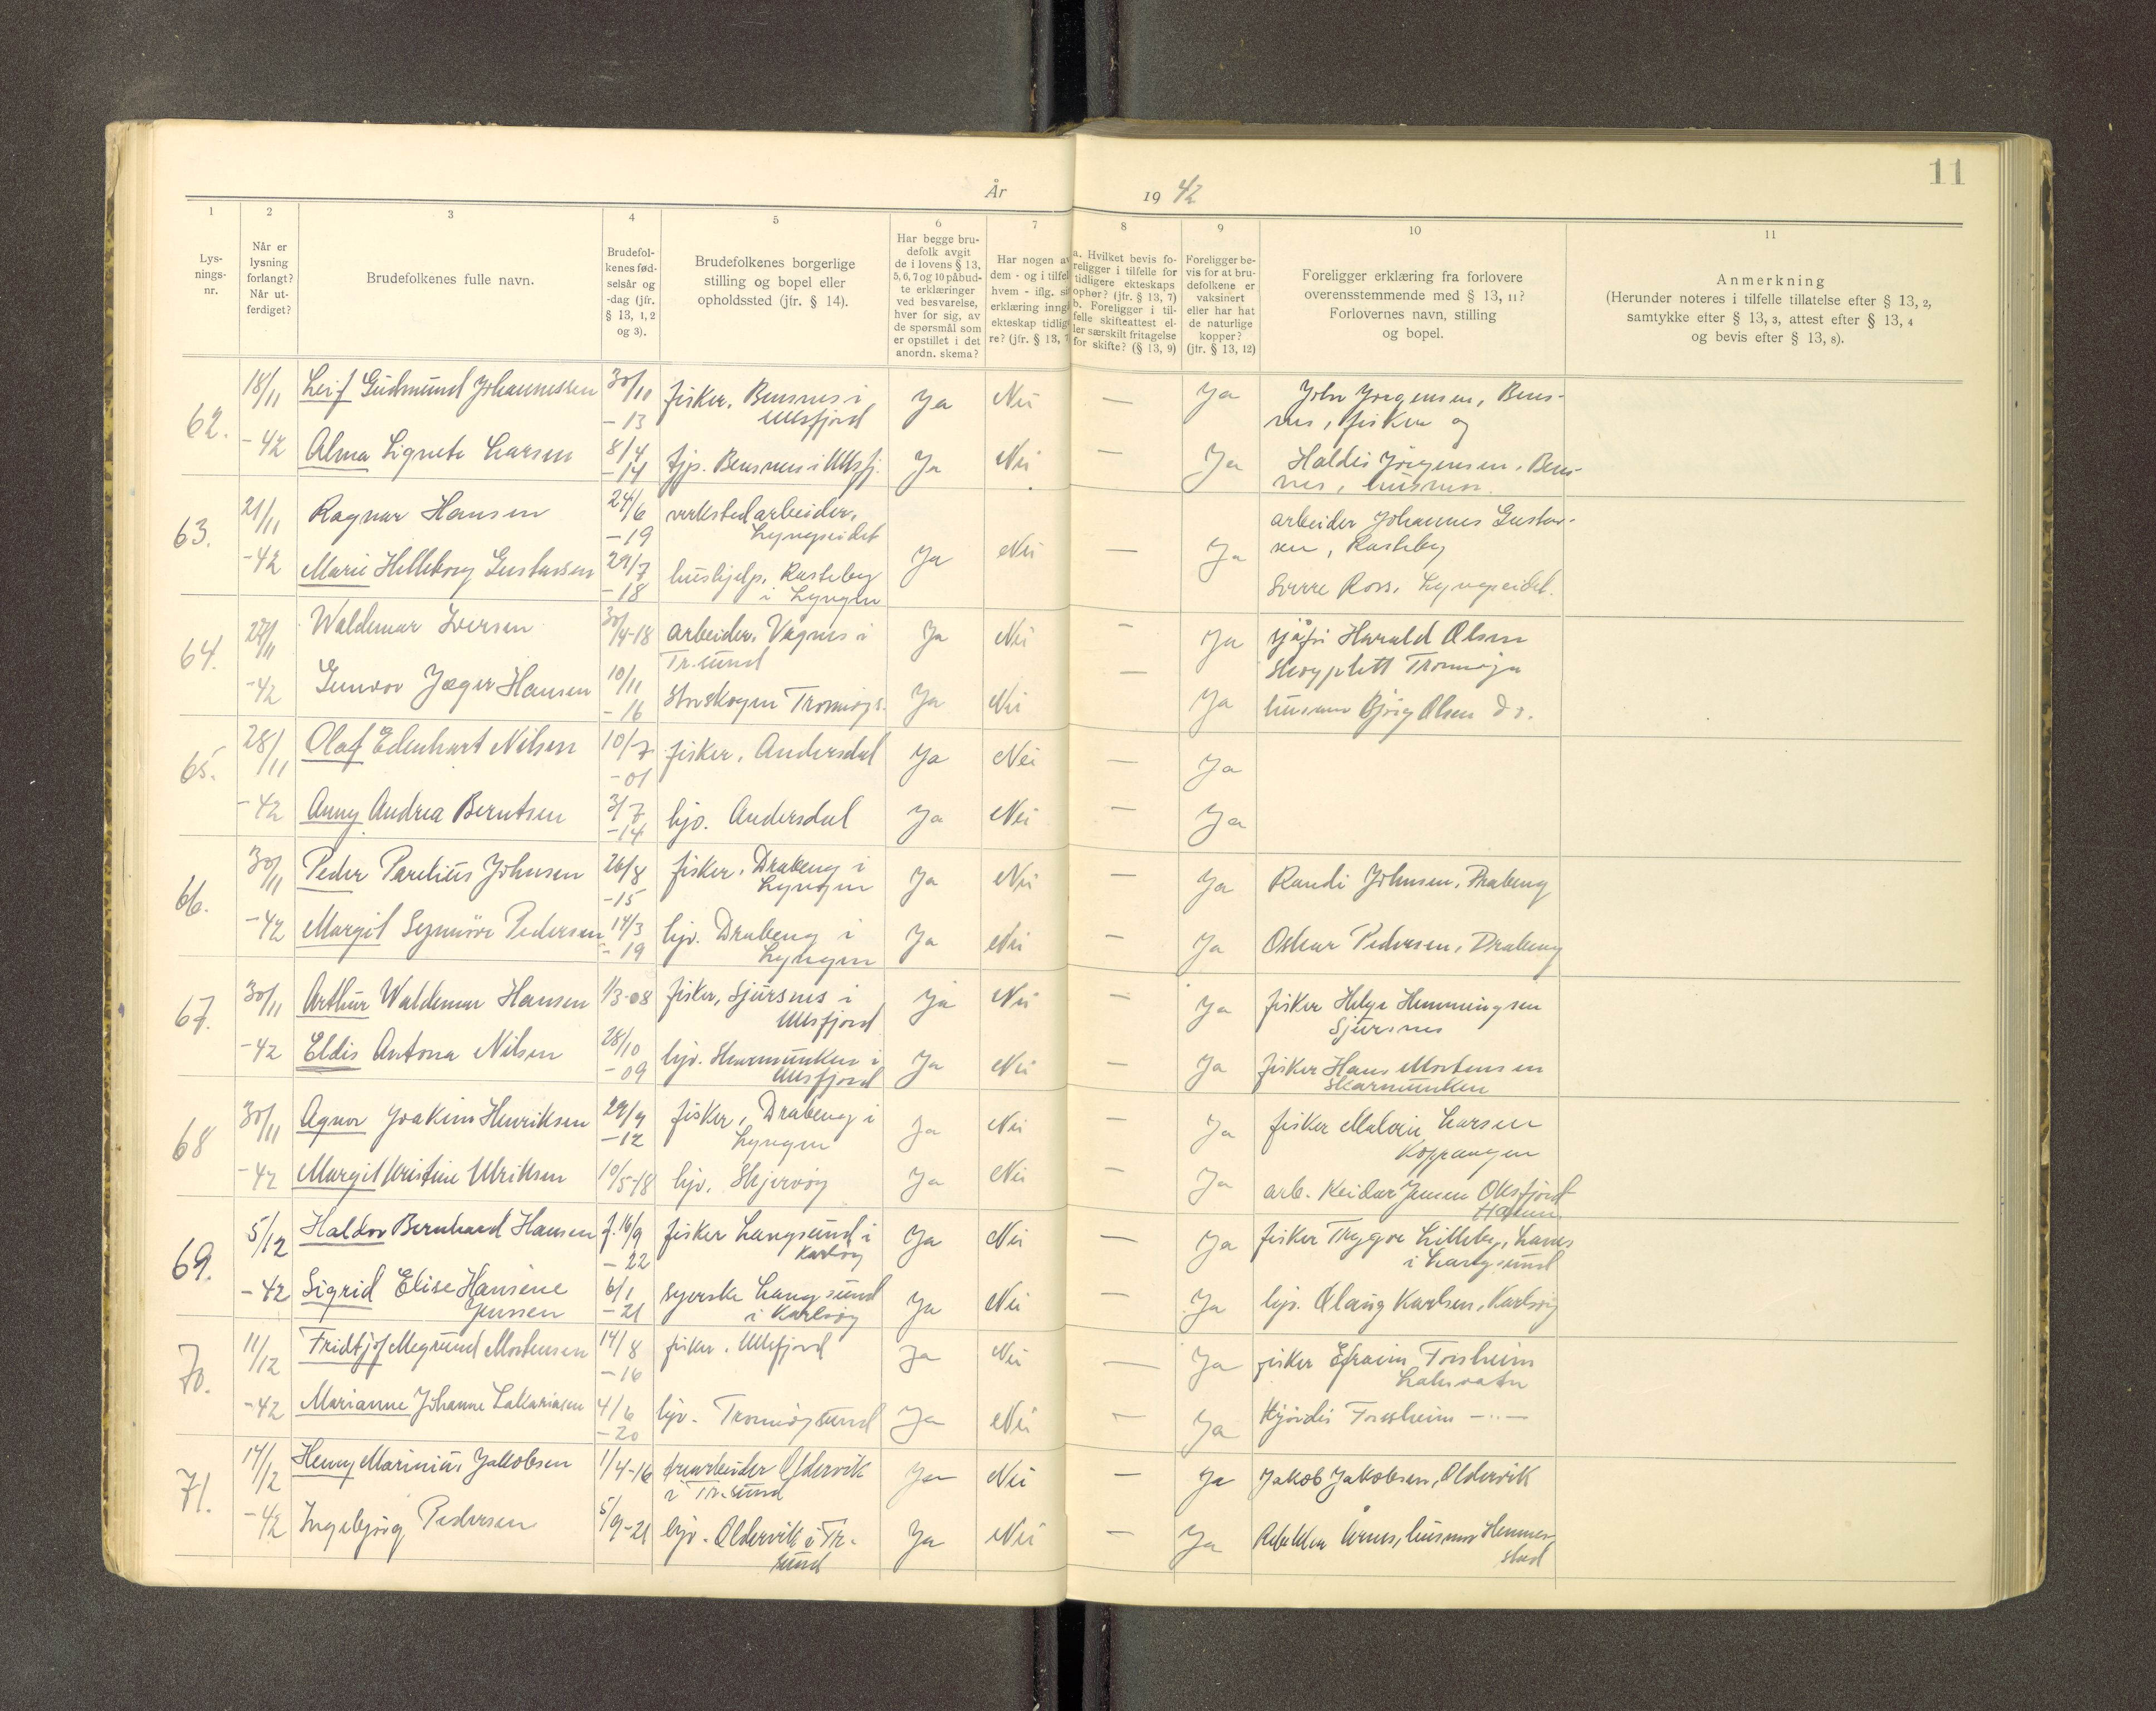 11
År 19 42
1 2 3 4 5 6 7 8 9 10 11
Lys-
nings-
nr.
Når er
lysning
forlangt?
Når ut-
ferdiget?
Brudefolkenes fulle navn.
Brudefol-
kenes fød-
selsår og
-dag (jfr.
§ 13, 1, 2
og 3).
Brudefolkenes borgerlige
stilling og bopel eller
opholdssted (jfr. § 14).
Har begge bru-
defolk avgit
de i lovens § 13,
5, 6, 7 og 10 påbud-
te erklæringer
ved besvarelse,
hver for sig, av
de spørsmål som
er opstillet i det
anordn. skema?
Har nogen av
dem - og i tilfel
hvem - iflg. si
erklæring inng
ekteskap tidlig
re? (jfr. § 13, 7
a. Hvilket bevis fo-
religger i tilfelle for
tidligere ekteskaps
ophør? (jfr. § 13, 7)
b. Foreligger i til-
felle skifteattest el-
ler særskilt fritagelse
for skifte? (§ 13, 9)
Foreligger be-
vis for at bru-
defolkene er
vaksinert
eller har hat
de naturlige
kopper?
(jfr. § 13, 12)
Foreligger erklæring fra forlovere
overensstemmende med § 13, 11?
Forlovernes navn, stilling
og bopel.
Anmerkning
(Herunder noteres i tilfelle tillatelse efter § 13, 2,
samtykke efter § 13, 3, attest efter § 13, 4
og bevis efter § 13, 8).
62. 18/11 Leif Gudmund Johannessen 30/11 fisker, Bensnes i Ja Nei — Ja John Jørgensen, Bens-
- 13 Ullsfjord nes, fisker og
- 42 Alma Lignete Larsen 8/4 hjv. Bensnes i Ullsfj. Ja Nei — Ja Haldis Jörgensen, Bens-
- 14 nes, husmor.
63. 21/11 Ragnar Hansen 24/6 verkstedarbeider, arbeider Johannes Gustav-
- 19 Lyngseidet Ja Nei — Ja sen, Rasteby
- 42 Marie Helleborg Gustavsen 29/7 hushjelp, Rasteby Sverre Ross, Lyngseidet.
- 18 i Lyngen
64. 27/11 Waldemar Iversen 30/4-18 arbeider, Vågnes i Ja Nei — Ja sjåfør Harald Olsen
Tr.sund Skogplett Tromsøya
- 42 Gunvor Jæger Hansen 10/11 Storskogen Tromsøys. Ja Nei — Ja husmor Bjørg Olsen do.
- 16
65. 28/11 Olaf Edenhart Nilsen 10/7 fisker, Andersdal Ja Nei — Ja
- 01
- 42 Anny Andrea Berntsen 3/7 hjv. Andersdal Ja Nei — Ja
- 14
66. 30/11 Peder Parelius Johnsen 26/8 fisker, Drabeng i Ja Nei — Ja Randi Johnsen, Drabeng
- 15 Lyngen
- 42 Margit Synnöve Pedersen 14/3 hjv. Drabeng i Ja Nei — Ja Oskar Pedersen, Drabeng
- 19 Lyngen
67. 30/11 Arthur Waldemar Hansen 1/3-08 fisker, Sjursnes i Ja Nei — Ja fisker Helge Hemmingsen
Ullsfjord Sjursnes
- 42 Eldis Antona Nilsen 28/10 hjv. Skarmunken i Ja Nei — Ja fisker Hans Mortensen
- 09 Ullsfjord Skarmunken
68 30/11 Agnor Joakim Henriksen 29/9 fisker, Drabeng i Ja Nei — Ja fisker Malvin Larsen
- 12 Lyngen Koppangen
- 42 Margit Kristine Ulriksen 10/5-18 hjv. Skjervøy Ja Nei — Ja arb. Reidar Jensen Oksfjord
Havn.
69. 5/12 Haldor Bernhard Hansen f. 16/9 fisker Langsund i Ja Nei — Ja fisker Trygve Lilleby,
- 22 Karlsøy i Langsund
- 42 Sigrid Elise Hansine 6/1 syerske Langsund Ja Nei — Ja hjv. Olaug Karlsen, Karlsøy
Jenssen - 21 i Karlsøy
70. 11/12 Fridtjof Megrund Mortensen 14/8 fisker, Ullsfjord Ja Nei — Ja fisker Efraim Forsheim
- 16 Laksvatn
- 42 Marianne Johanne Zakariasen 4/6 hjv. Tromsøysund Ja Nei — Ja Hjördis Forsheim —„—
- 20
71. 14/12 Henny Marinius Jakobsen 1/4-16 Oldervik Ja Nei — Ja Jakob Jakobsen, Oldervik
i Tr.sund
- 42 Ingebjørg Pedersen 5/9-21 hjv. Oldervik i Tr. Ja Nei — Ja Årnes, husmor
sund